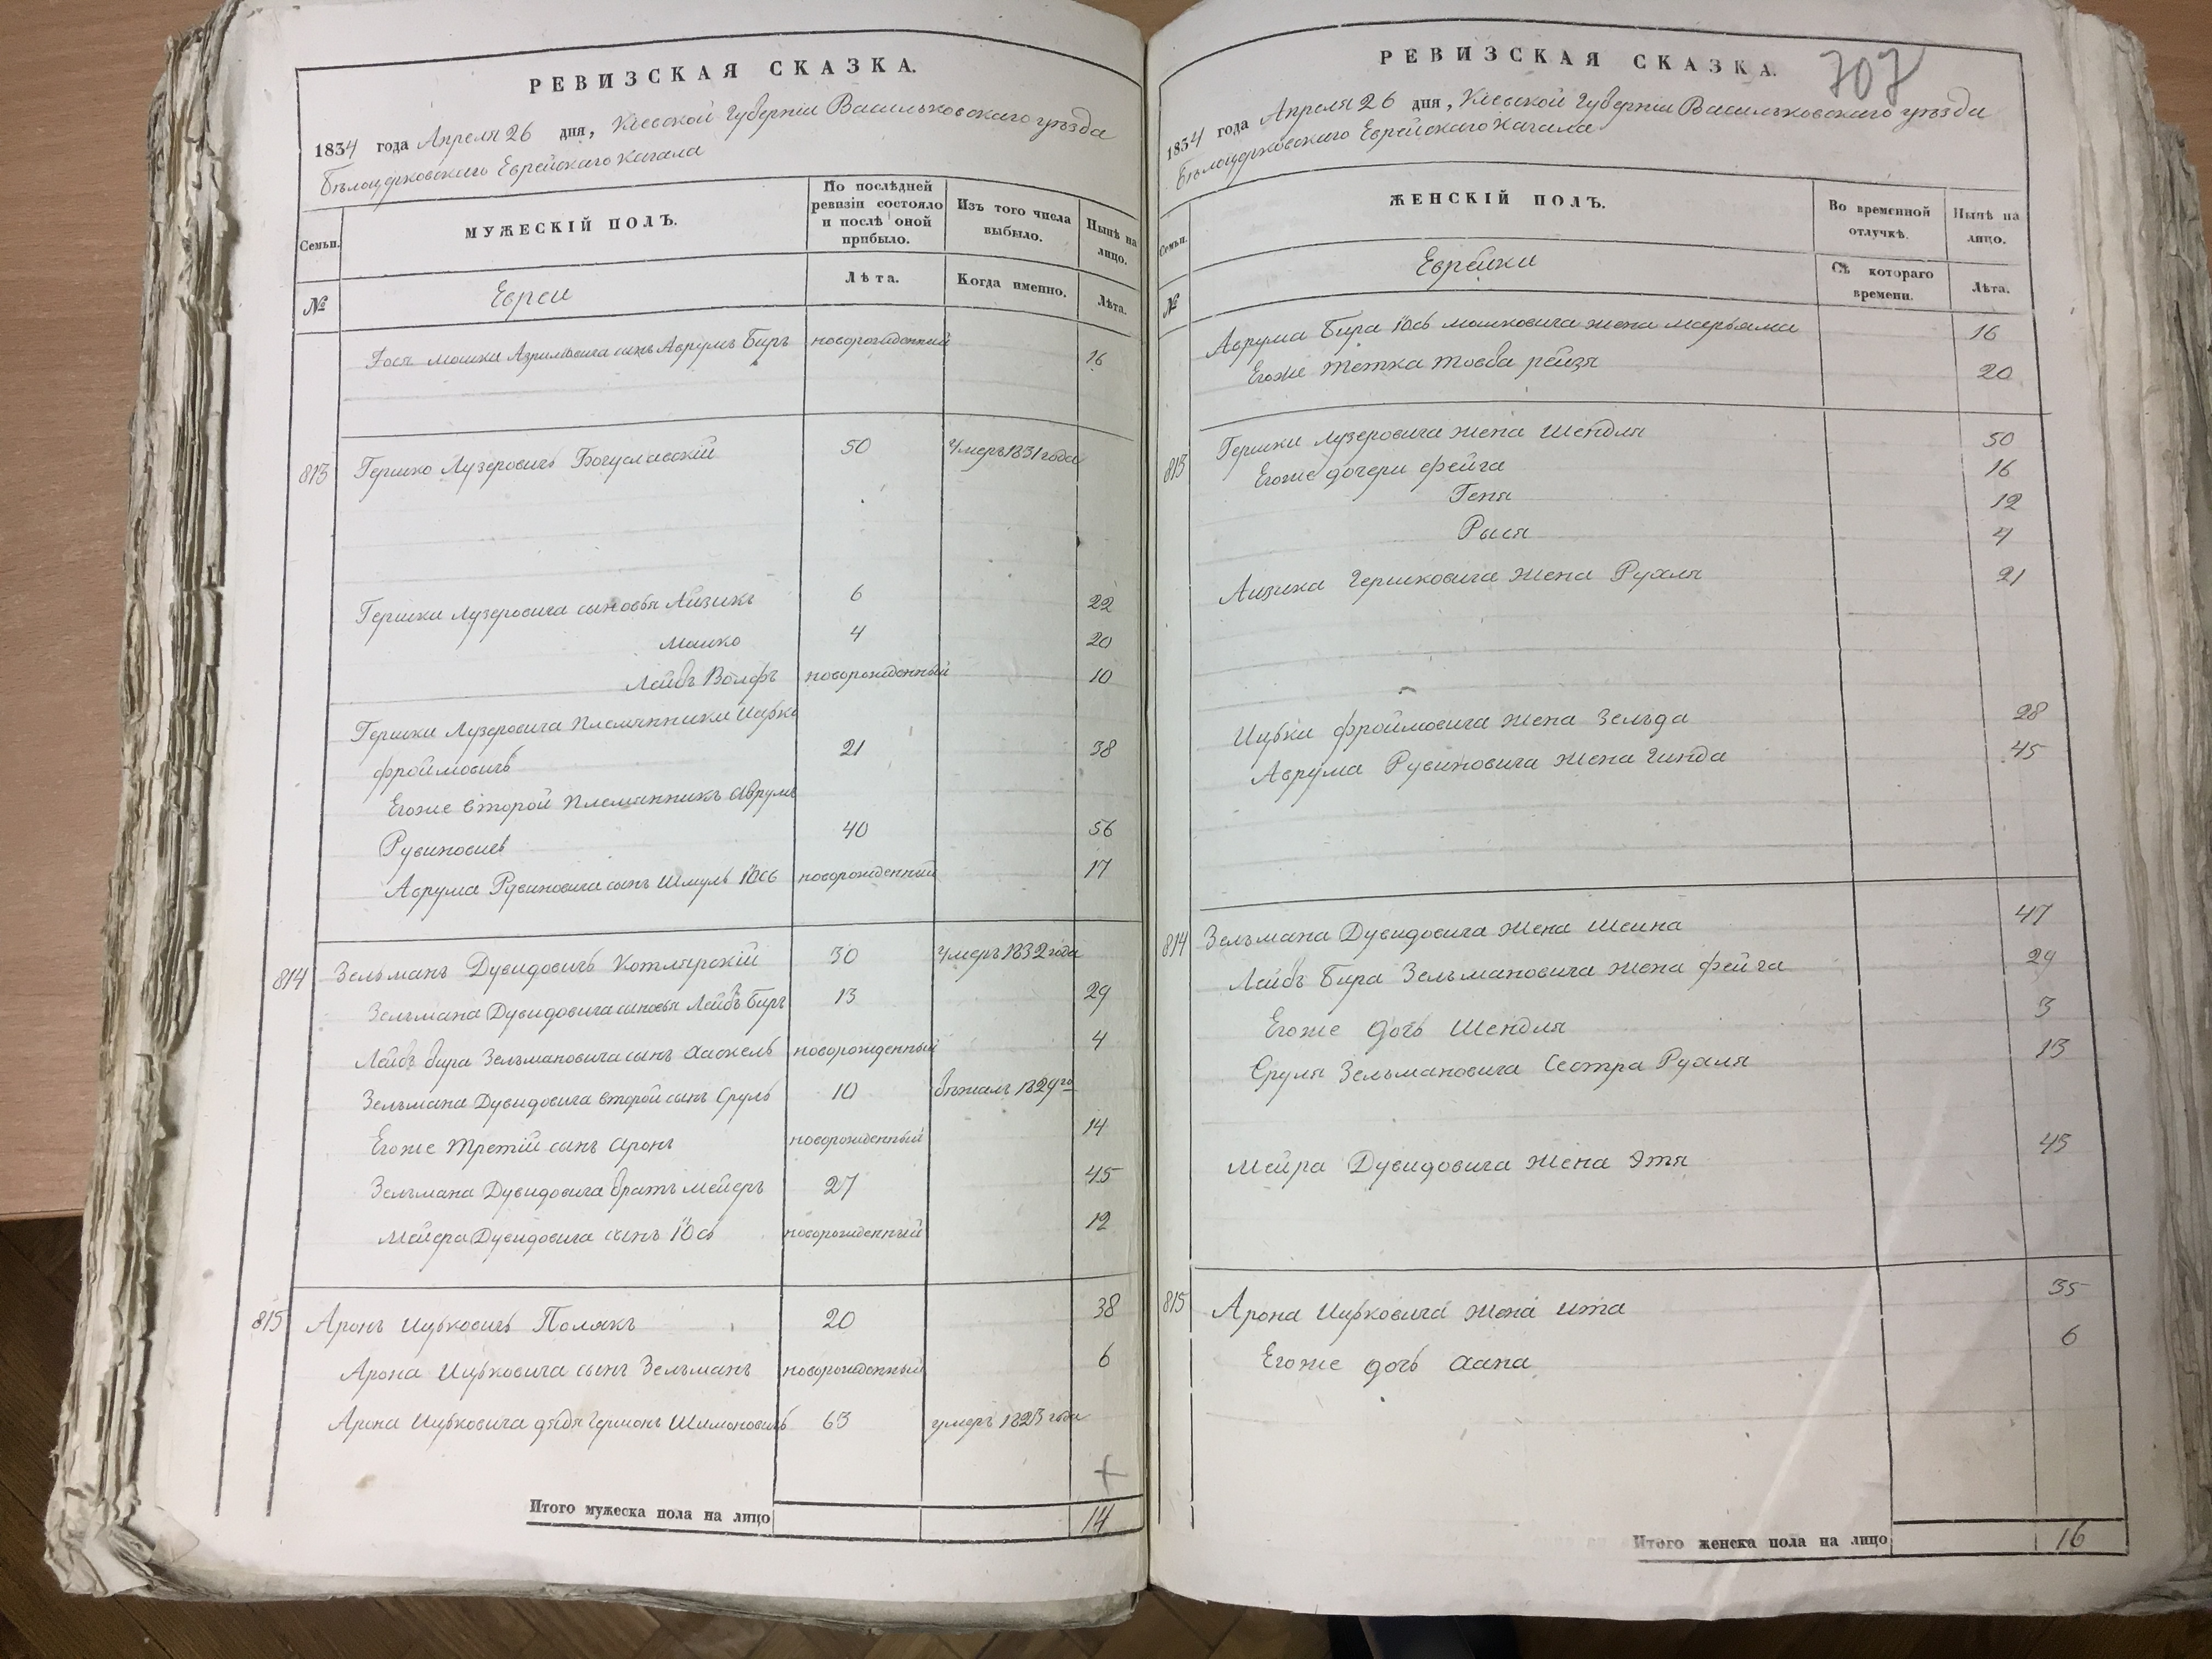 РЕВИЗСКАЯ СКАЗКА.
1834 года Апреля 26 дня, Кіевской Губерніи Васильковскаго уѣзда
Бѣлоцерковскаго Еврейскаго Кагала
Семьи. МУЖЕСКІЙ ПОЛЪ. По послѣдней ревизіи состояло и послѣ оной прибыло. Изъ того числа выбыло. Нынѣ на лицо.
№ Евреи Лѣта. Когда именно. Лѣта.
Мошки сынъ Аврумъ Биръ новорожденный 16
813 Гершко Лузеровичъ Богуславскій 50 Умеръ 1831 года
Гершки Лузеровича сыновья Айзикъ 6 22
Мошко 4 20
Лейбъ Волфъ новорожденный 10
Гершки Лузеровича Племянники Ицько
Фроймовичъ 21 38
Егоже второй Племянникъ Аврумъ
Рувиновичъ 40 56
Аврума Рувиновича сынъ Шмуль Іось новорожденный 17
814 Зельманъ Дувидовичъ Котлярскій 30 Умеръ 1832 года
Зельмана Дувидовича сыновья Лейбъ Биръ 13 29
Лейбъ Бира Зельмановича сынъ Хаскель новорожденный 4
Зельмана Дувидовича второй сынъ Сруль 10 бѣжалъ 1829го
Егоже Третій сынъ Аронъ новорожденный 14
Зельмана Дувидовича братъ Мейеръ 27 45
Мейера Дувидовича сынъ Іось новорожденный 12
815 Аронъ Ицьковичъ Полякъ 20 38
Арона Ицьковича сынъ Зельманъ новорожденный 6
Арона Ицьковича дядя Гершонъ Шимоновичъ 63 умеръ 1823 года
Итого мужеска пола на лицо 14
РЕВИЗСКАЯ СКАЗКА. 707
1834 года Апреля 26 дня, Кіевской Губерніи Васильковскаго уѣзда
Бѣлоцерковскаго Еврейскаго Кагала
Семьи. ЖЕНСКІЙ ПОЛЪ. Во временной отлучкѣ. Нынѣ на лицо.
№ Еврейки Съ котораго времени. Лѣта.
Аврума Бира Іось Мошковича жена Марьяма 16
Егоже Тетка Товба Рейзя 20
813 Гершки Лузеровича жена Шендля 50
Егоже дочери Фейга 16
Геня 12
Рыся 4
Аизика Гершковича жена Рухля 21
Ицьки Фроймовича жена Зельда 28
Аврума Рувиновича жена Гинда 45
814 Зельмана Дувидовича жена Шеина 47
Лейбъ Бира Зельмановича жена Фейга 24
Егоже дочь Шендля 3
Сруля Зельмановича Сестра Рухля 13
Мейра Дувидовича жена Этя 43
815 Арона Ицьковича жена Ита 35
Егоже дочь Хана 6
Итого женска пола на лицо 16